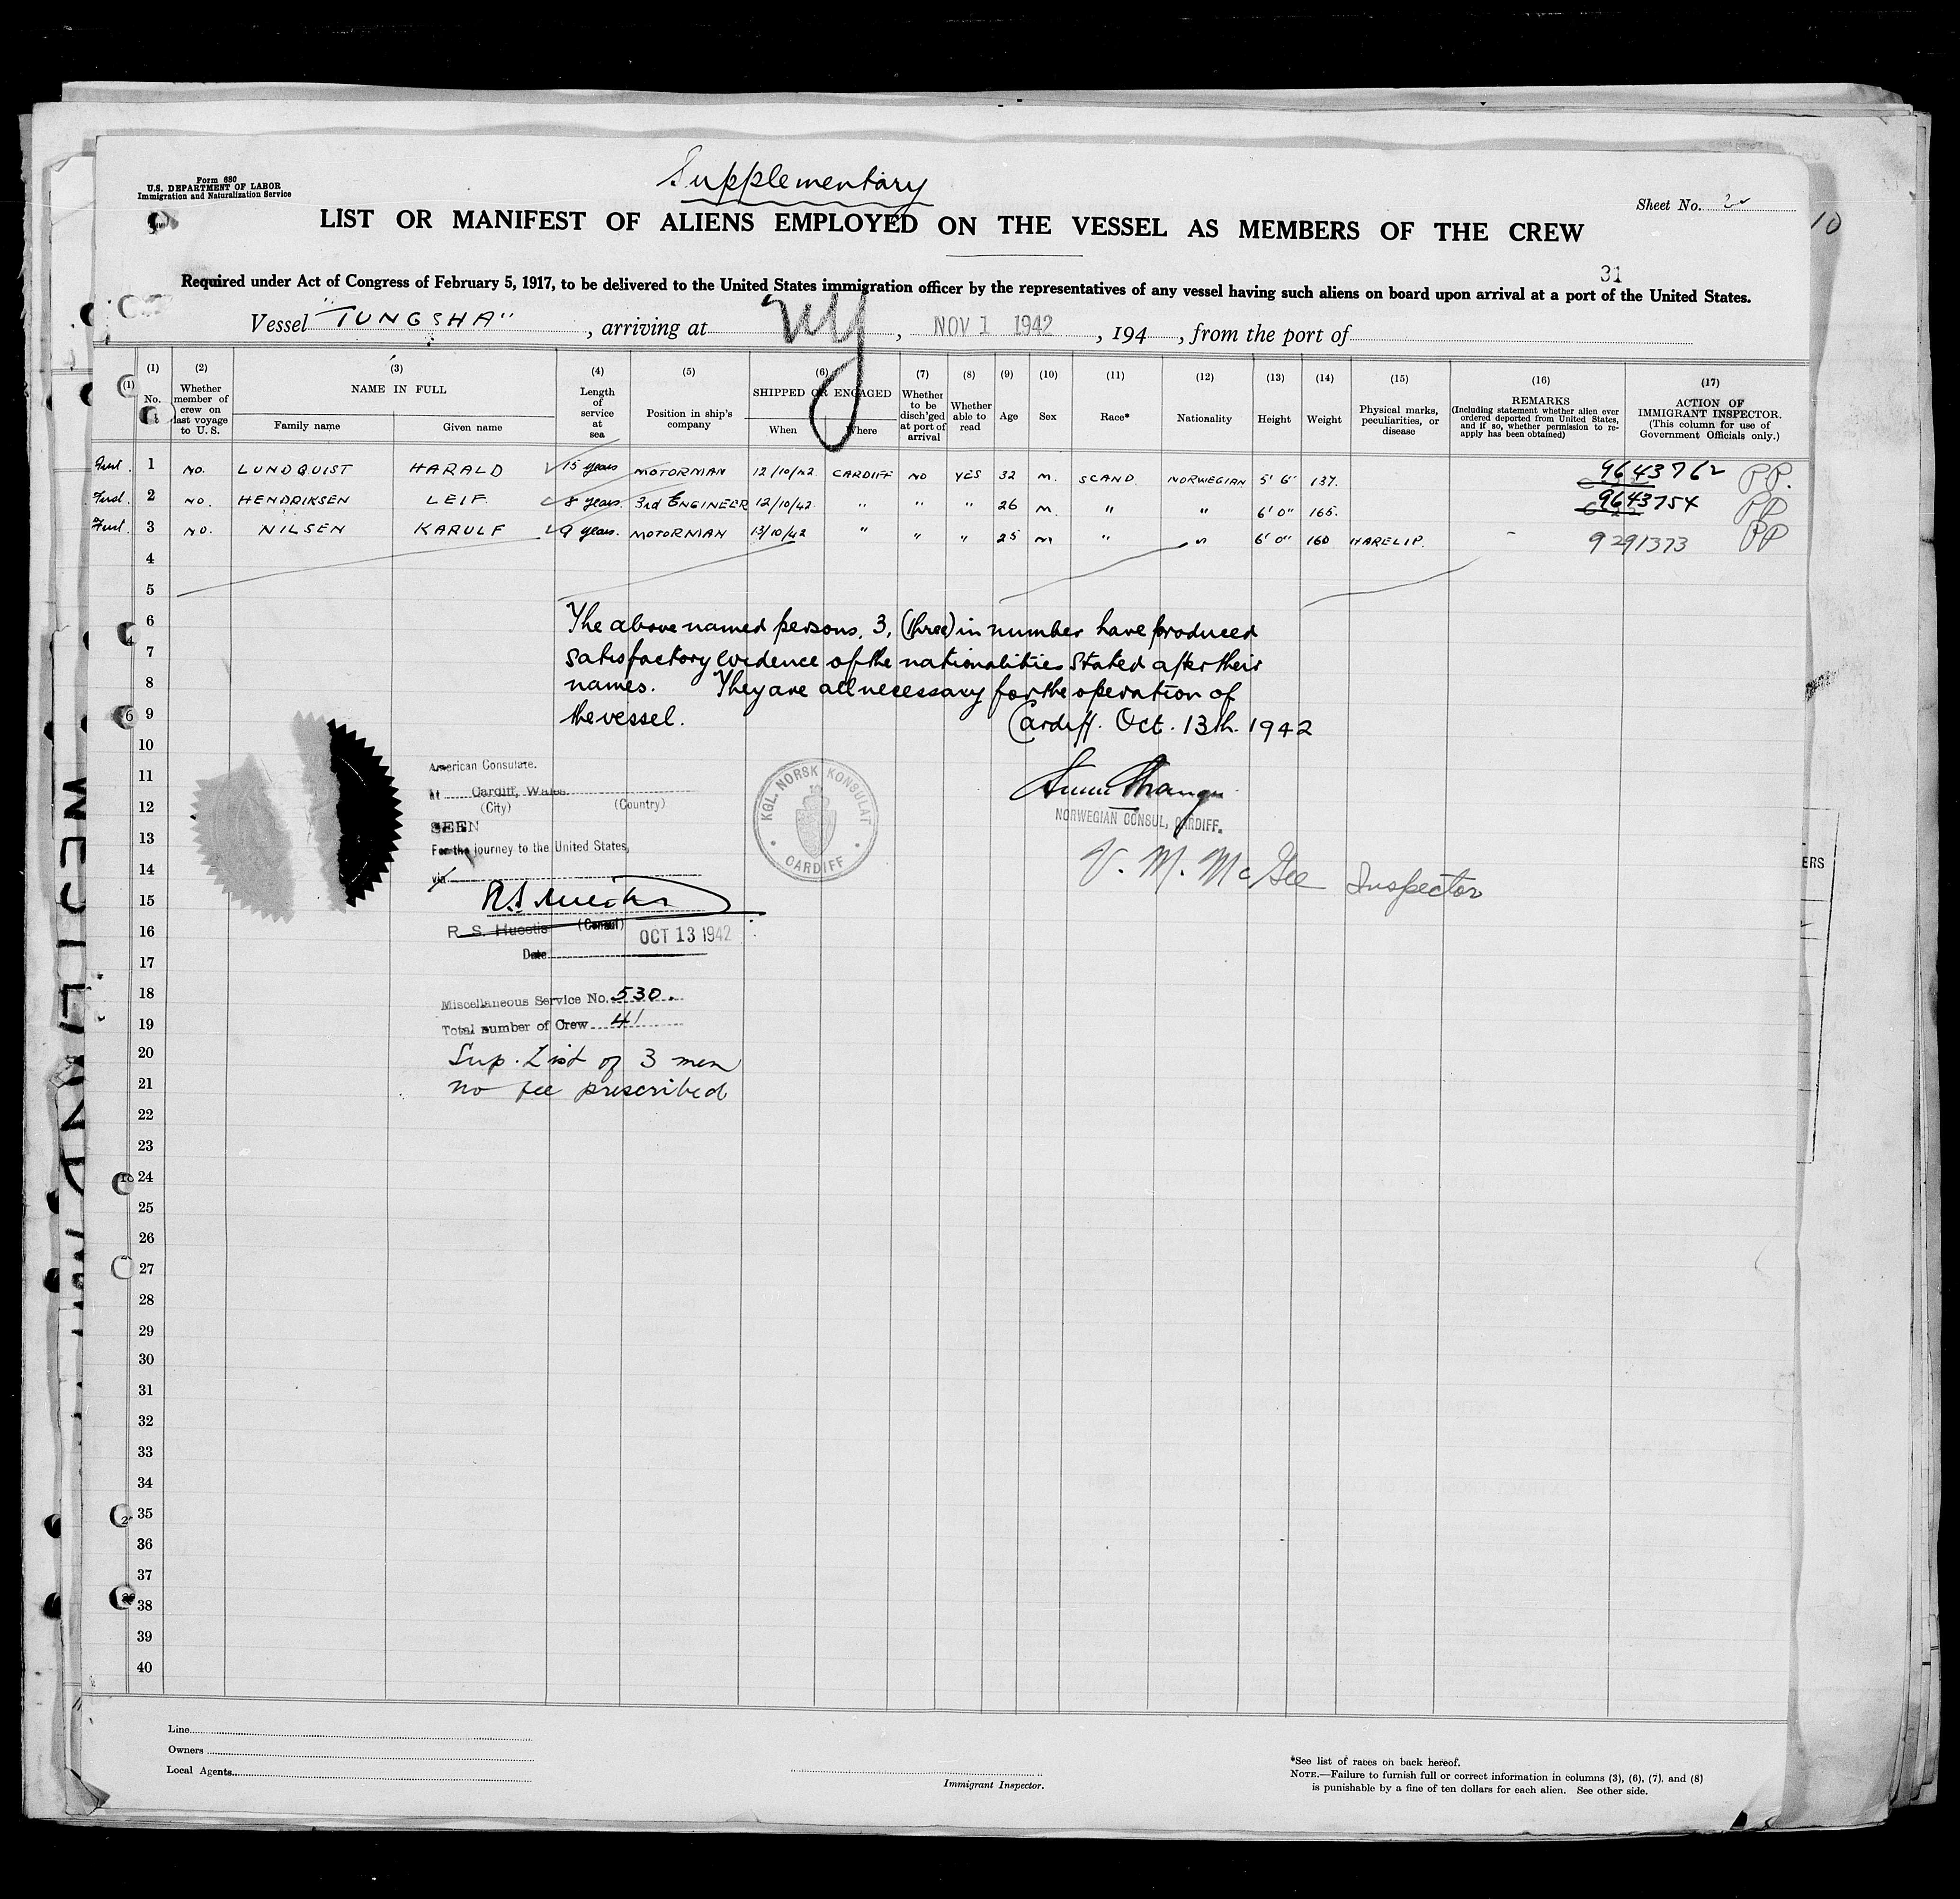 Form 680
U.S. DEPARTMENT OF LABOR
Immigration and Naturalization Service
Supplementary
Sheet No. 2
10
LIST OR MANIFEST OF ALIENS EMPLOYED ON THE VESSEL AS MEMBERS OF THE CREW
31
Required under Act of Congress of February 5, 1917, to be delivered to the United States immigration officer by the representatives of any vessel having such aliens on board upon arrival at a port of the United States.
Vessel "TUNGSHA", arriving at NY, NOV 1 1942, 194, from the port of
(1) (2) (3) (4) (5) (6) (7) (8) (9) (10) (11) (12) (13) (14) (15) (16) (17)
No. Whether member of crew on last voyage to U. S. NAME IN FULL Family name Given name Length of service at sea Position in ship's company SHIPPED OR ENGAGED When Where Whether to be disch'ged at port of arrival Whether able to read Age Sex Race* Nationality Height Weight Physical marks, peculiarities, or disease REMARKS (Including statement whether alien ever ordered deported from United States, and if so, whether permission to re-apply has been obtained) ACTION OF IMMIGRANT INSPECTOR. (This column for use of Government Officials only.)
First. 1 NO. LUNDQUIST HARALD 15 years MOTORMAN 12/10/42 CARDIFF NO YES 32 M. SCAND. NORWEGIAN 5' 6" 137. 9643762 PP.
First. 2 NO. HENDRIKSEN LEIF 8 years. 3rd ENGINEER 12/10/42 " " " 26 M. " " 6' 0" 165. 9643754 PP
First. 3 NO. NILSEN KARULF 9 years. MOTORMAN 13/10/42 " " " 25 M " " 6' 0" 160 HARELIP. - 9291373 PP
4
5
6 The above named persons, 3, (three) in number have produced
7 satisfactory evidence of the nationalities stated after their
8 names. They are all necessary for the operation of
9 the vessel. Cardiff. Oct. 13th. 1942
10
11 American Consulate.
12 At Cardiff, Wales.
(City) (Country)
KGL. NORSK KONSULAT
CARDIFF
NORWEGIAN CONSUL, CARDIFF.
13 SEEN
For the journey to the United States,
14 via
V. M. McGee Inspector
15
16 R. S. Huestis (Consul)
OCT 13 1942
17 Date
18 Miscellaneous Service No. 530.
19 Total number of Crew 41
20 Sup. List of 3 men
21 no fee prescribed
22
23
24
25
26
27
28
29
30
31
32
33
34
35
36
37
38
39
40
Line
Owners
Local Agents
Immigrant Inspector.
*See list of races on back hereof.
NOTE.—Failure to furnish full or correct information in columns (3), (6), (7), and (8)
is punishable by a fine of ten dollars for each alien. See other side.
ERS